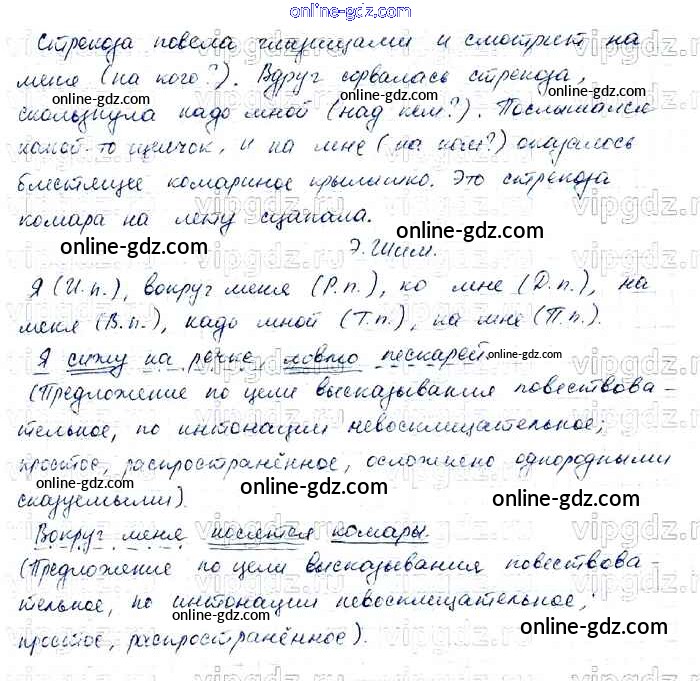 online-gdz.com
Стрекоза повела глазищами и смотрит на
меня (на кого?). Вдруг сорвалась стрекоза,
скользнула надо мной (над кем?). Послышался
какой-то щелчок, и на мне (на ком?) оказалось
блестящее комариное крылышко. Это стрекоза
комара на лету сцапала.
Э. Шим.
Я (И.п.), вокруг меня (Р.п.), ко мне (Д.п.), на
меня (В.п.), надо мной (Т.п.), на мне (П.п.).
Я сижу на речке, ловлю пескарей.
(Предложение по цели высказывания повествова-
тельное, по интонации невосклицательное,
простое, распространённое, осложнено однородными
сказуемыми).
Вокруг меня носятся комары.
(Предложение по цели высказывания повествова-
тельное, по интонации невосклицательное,
простое, распространённое).